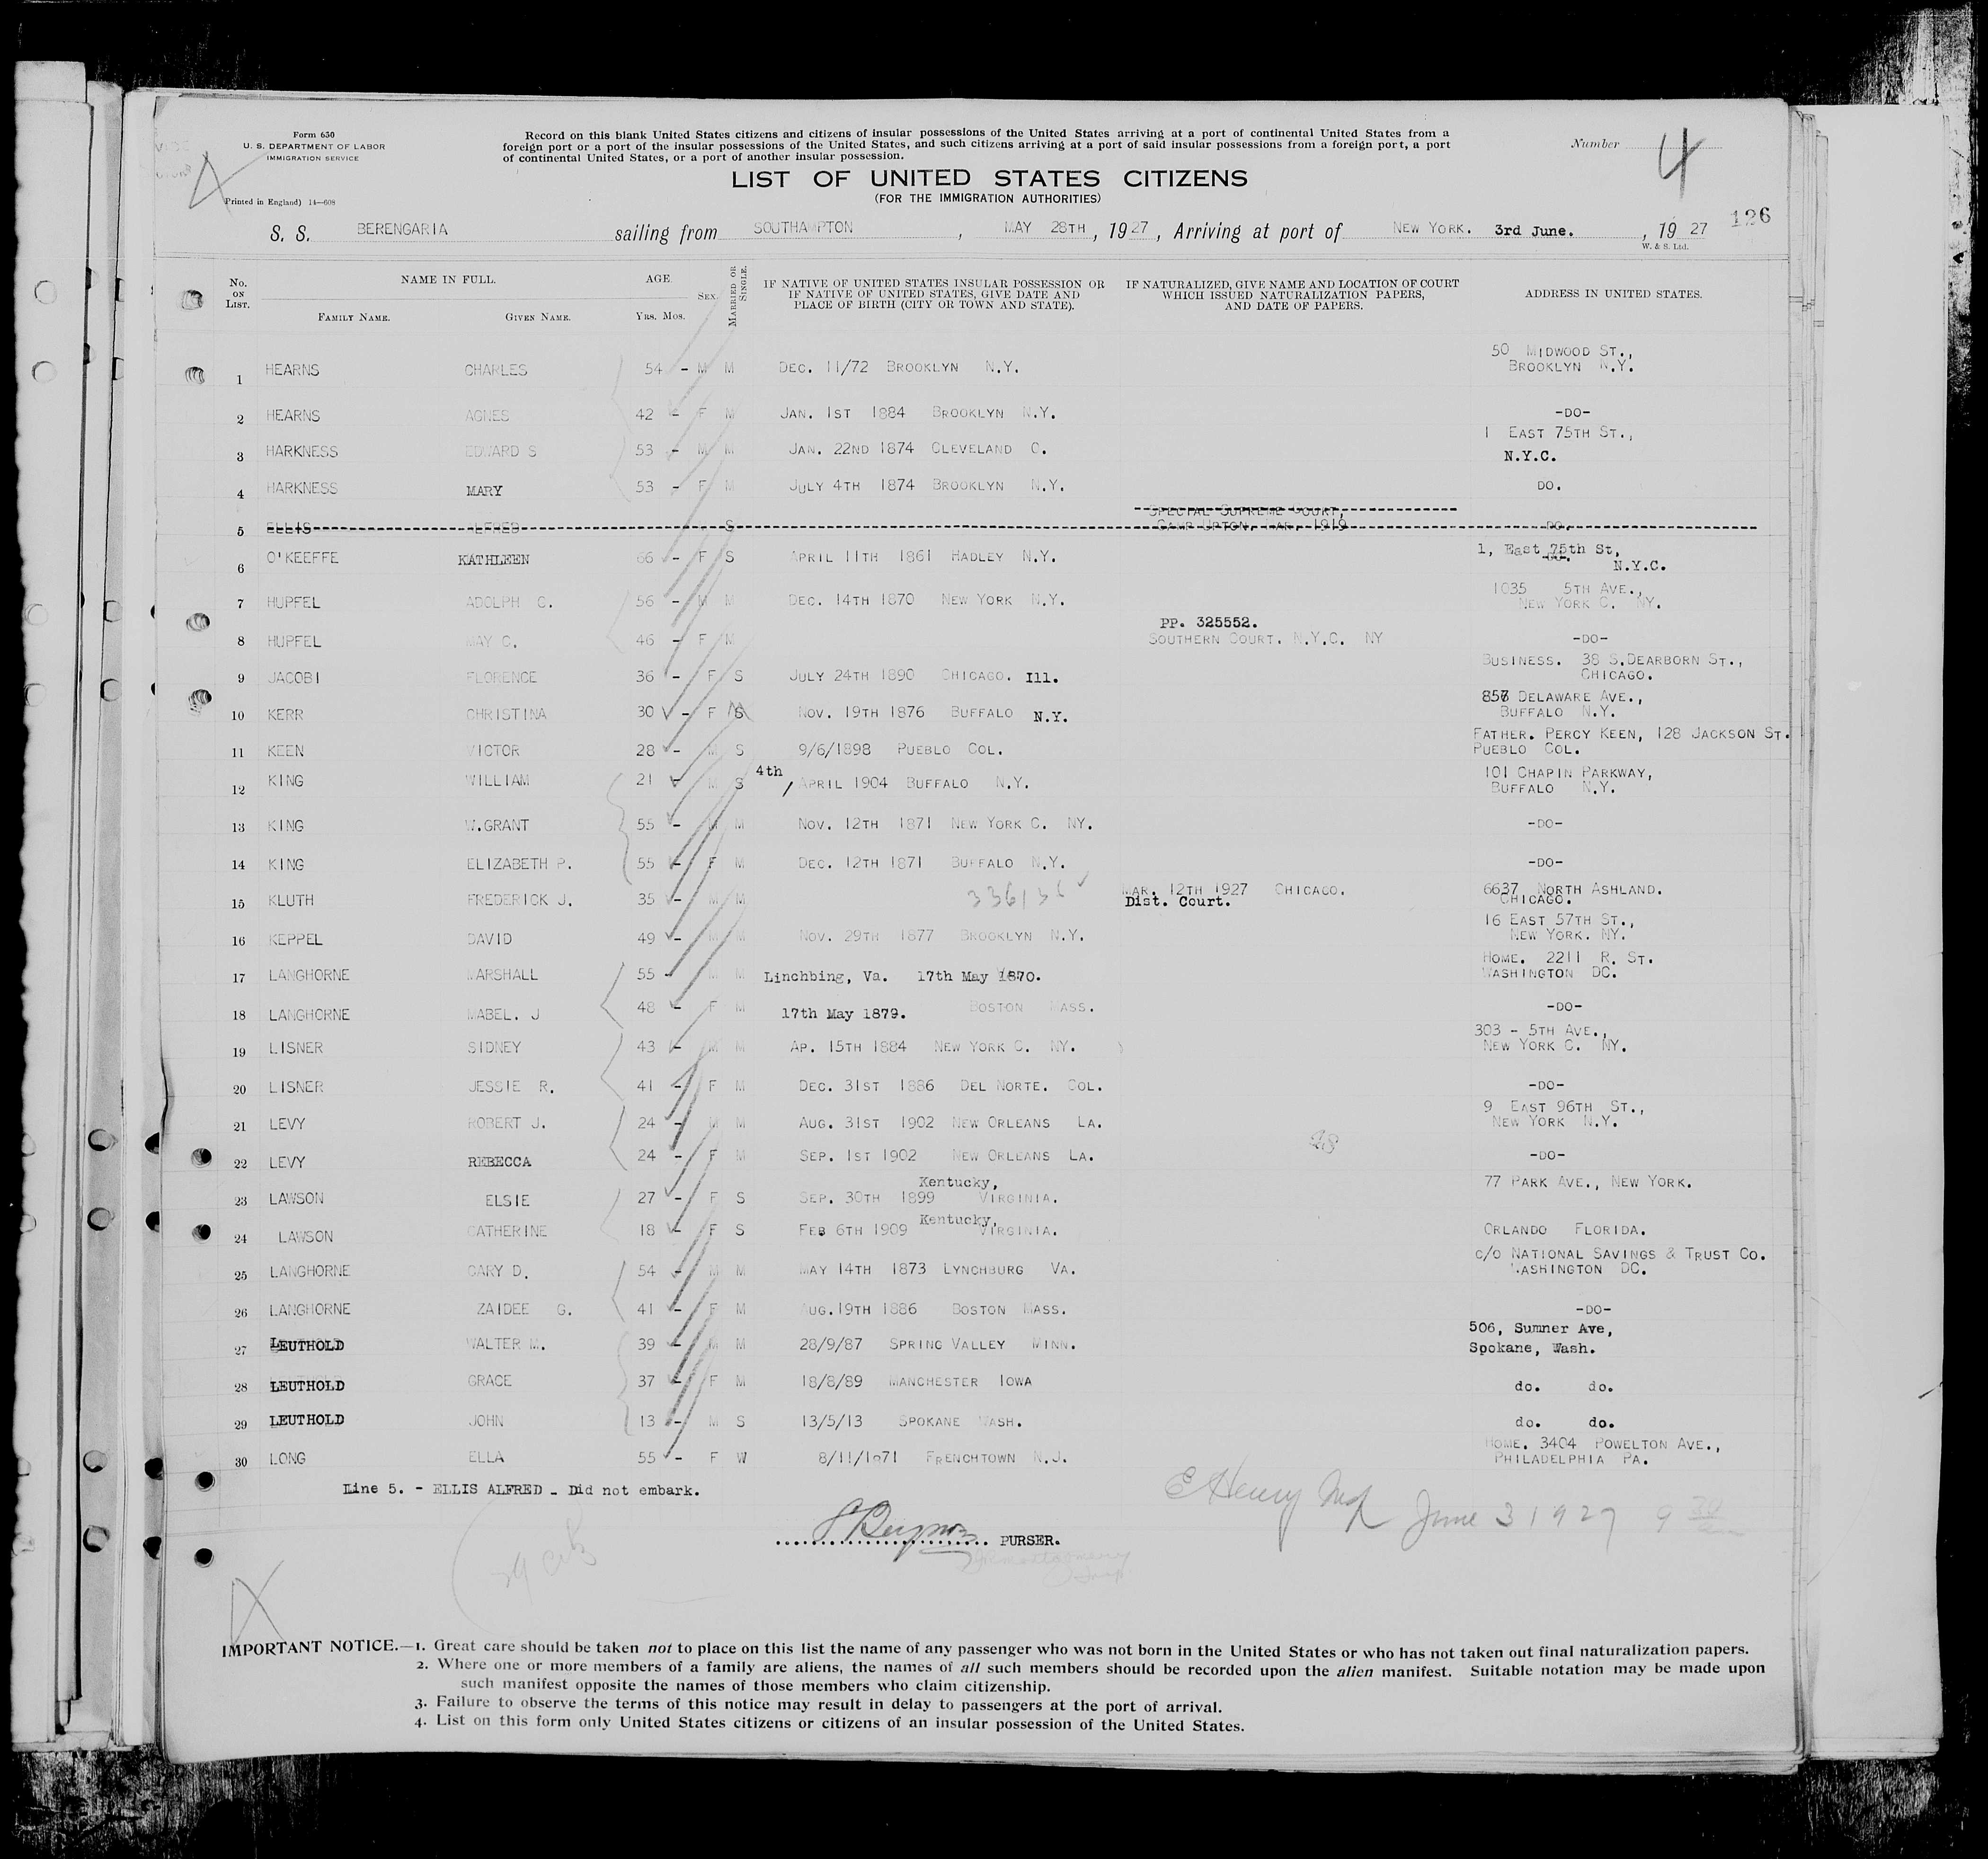 Form 630
U. S. DEPARTMENT OF LABOR
IMMIGRATION SERVICE
Printed in England) 14—608
Record on this blank United States citizens and citizens of insular possessions of the United States arriving at a port of continental United States from a
foreign port or a port of the insular possessions of the United States, and such citizens arriving at a port of said insular possessions from a foreign port, a port
of continental United States, or a port of another insular possession.
Number 4
LIST OF UNITED STATES CITIZENS
(FOR THE IMMIGRATION AUTHORITIES)
126
S. S. BERENGARIA sailing from SOUTHAMPTON, MAY 28TH, 1927, Arriving at port of NEW YORK. 3rd June., 1927
W. & S. Ltd.
No. ON LIST. NAME IN FULL. FAMILY NAME. GIVEN NAME. AGE Yrs. Mos. SEX. MARRIED OR SINGLE. IF NATIVE OF UNITED STATES INSULAR POSSESSION OR IF NATIVE OF UNITED STATES, GIVE DATE AND PLACE OF BIRTH (CITY OR TOWN AND STATE). IF NATURALIZED, GIVE NAME AND LOCATION OF COURT WHICH ISSUED NATURALIZATION PAPERS, AND DATE OF PAPERS. ADDRESS IN UNITED STATES.
1 HEARNS CHARLES 54 - M M DEC. 11/72 BROOKLYN N.Y. 50 MIDWOOD ST., BROOKLYN N.Y.
2 HEARNS AGNES 42 - F M JAN. 1ST 1884 BROOKLYN N.Y. -DO-
3 HARKNESS EDWARD S 53 - M M JAN. 22ND 1874 CLEVELAND O. 1 EAST 75TH ST., N.Y.C.
4 HARKNESS MARY 53 - F M JULY 4TH 1874 BROOKLYN N.Y. DO.
5 ELLIS ALFRED S SPECIAL SUPREME COURT, CAMP UPTON, MAR, 1919 DO.
6 O'KEEFFE KATHLEEN 66 - F S APRIL 11TH 1861 HADLEY N.Y. 1, East 75th St, N.Y.C.
7 HUPFEL ADOLPH G. 56 - M M DEC. 14TH 1870 NEW YORK N.Y. 1035 5TH AVE., NEW YORK C. NY.
8 HUPFEL MAY C. 46 - F M PP. 325552. SOUTHERN COURT. N.Y.C. NY -DO-
9 JACOBI FLORENCE 36 - F S JULY 24TH 1890 CHICAGO. Ill. BUSINESS. 38 S.DEARBORN ST., CHICAGO.
10 KERR CHRISTINA 30 - F S NOV. 19TH 1876 BUFFALO N.Y. DELAWARE AVE., BUFFALO N.Y.
11 KEEN VICTOR 28 - M S 9/6/1898 PUEBLO COL. FATHER. PERCY KEEN, 128 JACKSON ST. PUEBLO COL.
12 KING WILLIAM 21 - M S 4th, APRIL 1904 BUFFALO N.Y. 101 CHAPIN PARKWAY, BUFFALO N.Y.
13 KING W.GRANT 55 - M M NOV. 12TH 1871 NEW YORK C. NY. -DO-
14 KING ELIZABETH P. 55 - F M DEC. 12TH 1871 BUFFALO N.Y. -DO-
15 KLUTH FREDERICK J. 35 - M M 336136 MAR. 12TH 1927 CHICAGO. Dist. Court. 6637 NORTH ASHLAND. CHICAGO.
16 KEPPEL DAVID 49 - M M NOV. 29TH 1877 BROOKLYN N.Y. 16 EAST 57TH ST., NEW YORK. NY.
17 LANGHORNE MARSHALL 55 - M M Linchbing, Va. 17th May 1870. HOME. 2211 R. ST. WASHINGTON DC.
18 LANGHORNE MABEL. J 48 - F M 17th May 1879. BOSTON MASS. -DO-
19 LISNER SIDNEY 43 - M M AP. 15TH 1884 NEW YORK C. NY. 303 - 5TH AVE., NEW YORK C. NY.
20 LISNER JESSIE R. 41 - F M DEC. 31ST 1886 DEL NORTE. COL. -DO-
21 LEVY ROBERT J. 24 - M M AUG. 31ST 1902 NEW ORLEANS LA. 9 EAST 96TH ST., NEW YORK N.Y.
22 LEVY REBECCA 24 - F M SEP. 1ST 1902 NEW ORLEANS LA. -DO-
23 LAWSON ELSIE 27 - F S SEP. 30TH 1899 Kentucky, VIRGINIA. 77 PARK AVE., NEW YORK.
24 LAWSON CATHERINE 18 - F S FEB 6TH 1909 Kentucky, VIRGINIA. ORLANDO FLORIDA.
25 LANGHORNE CARY D. 54 - M M MAY 14TH 1873 LYNCHBURG VA. c/o NATIONAL SAVINGS & TRUST CO. WASHINGTON DC.
26 LANGHORNE ZAIDEE G. 41 - F M AUG.19TH 1886 BOSTON MASS. -DO-
27 LEUTHOLD WALTER M. 39 - M M 28/9/87 SPRING VALLEY MINN. 506, Sumner Ave, Spokane, Wash.
28 LEUTHOLD GRACE 37 - F M 18/8/89 MANCHESTER IOWA do. do.
29 LEUTHOLD JOHN 13 - M S 13/5/13 SPOKANE WASH. do. do.
30 LONG ELLA 55 - F W 8/11/1871 FRENCHTOWN N.J. HOME. 3404 POWELTON AVE., PHILADELPHIA PA.
Line 5. - ELLIS ALFRED - Did not embark.
E Henry June 3 1927 9 30
PURSER.
IMPORTANT NOTICE.—1. Great care should be taken not to place on this list the name of any passenger who was not born in the United States or who has not taken out final naturalization papers.
2. Where one or more members of a family are aliens, the names of all such members should be recorded upon the alien manifest. Suitable notation may be made upon
such manifest opposite the names of those members who claim citizenship.
3. Failure to observe the terms of this notice may result in delay to passengers at the port of arrival.
4. List on this form only United States citizens or citizens of an insular possession of the United States.